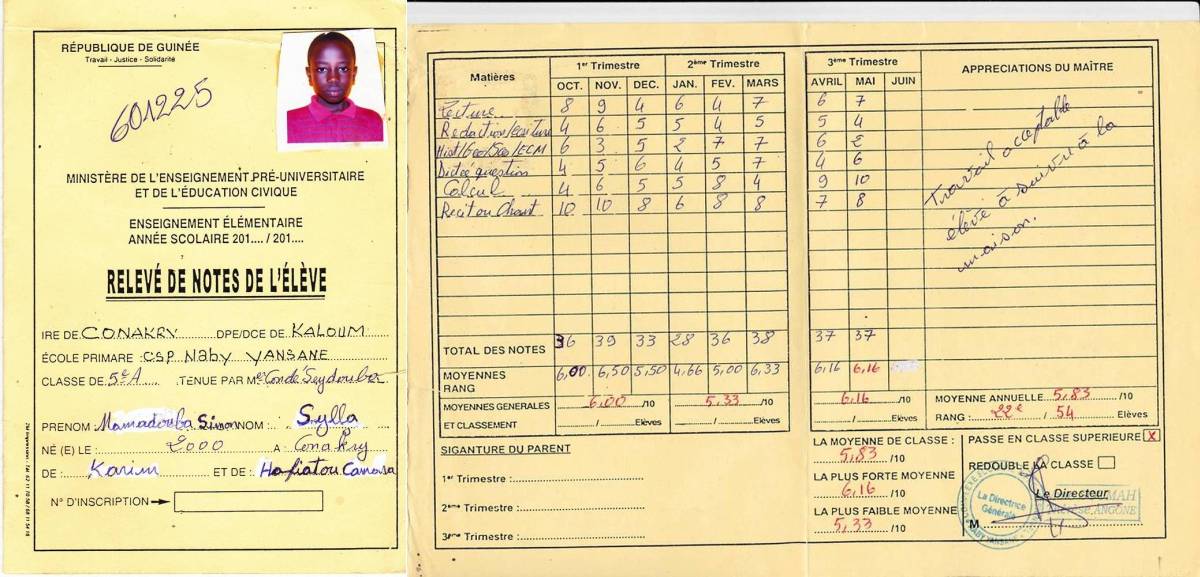 RÉPUBLIQUE DE GUINÉE
Travail - Justice - Solidarité
601225
MINISTÈRE DE L'ENSEIGNEMENT PRÉ-UNIVERSITAIRE
ET DE L'ÉDUCATION CIVIQUE
ENSEIGNEMENT ÉLÉMENTAIRE
ANNÉE SCOLAIRE 201.... / 201....
RELEVÉ DE NOTES DE L'ÉLÈVE
IRE DE CONAKRY DPE/DCE DE KALOUM
ÉCOLE PRIMARE : CSP Naby YANSANE
CLASSE DE 5e A TENUE PAR Mr Condé Seydouba
PRENOM : Mamadouba Simon NOM : Sylla
NÉ (E) LE : 2000 A Conakry
DE : Karim ET DE : Hafiatou Camara
N° D'INSCRIPTION
Matières 1er Trimestre 2ème Trimestre 3ème Trimestre APPRECIATIONS DU MAÎTRE
OCT. NOV. DEC. JAN. FEV. MARS AVRIL MAI JUIN
Lecture 8 9 4 6 4 7 6 7
Rédaction/écriture 4 6 5 5 4 5 5 4
Hist/Geo/Sco/ECM 6 3 5 2 7 7 6 2
Dictée question 4 5 6 4 5 7 4 6
Calcul 4 6 5 5 8 4 9 10
Recit ou Chant 10 10 8 6 8 8 7 8
Travail acceptable
élève à suivre à la
maison.
TOTAL DES NOTES 36 39 33 28 36 38 37 37
MOYENNES 6,00 6,50 5,50 4,66 5,00 6,33 6,16 6,16
RANG
MOYENNES GENERALES 6,00 /10 5,33 /10 6,16 /10 MOYENNE ANNUELLE 5,83 /10
ET CLASSEMENT / Elèves / Elèves RANG : 22e / 54 Elèves
SIGANTURE DU PARENT
1er Trimestre :
2ème Trimestre :
3ème Trimestre :
LA MOYENNE DE CLASSE :
5,83 /10
LA PLUS FORTE MOYENNE
6,16 /10
LA PLUS FAIBLE MOYENNE
5,33 /10
PASSE EN CLASSE SUPERIEURE X
REDOUBLE LA CLASSE
Le Directeur
M
La Directrice
Générale